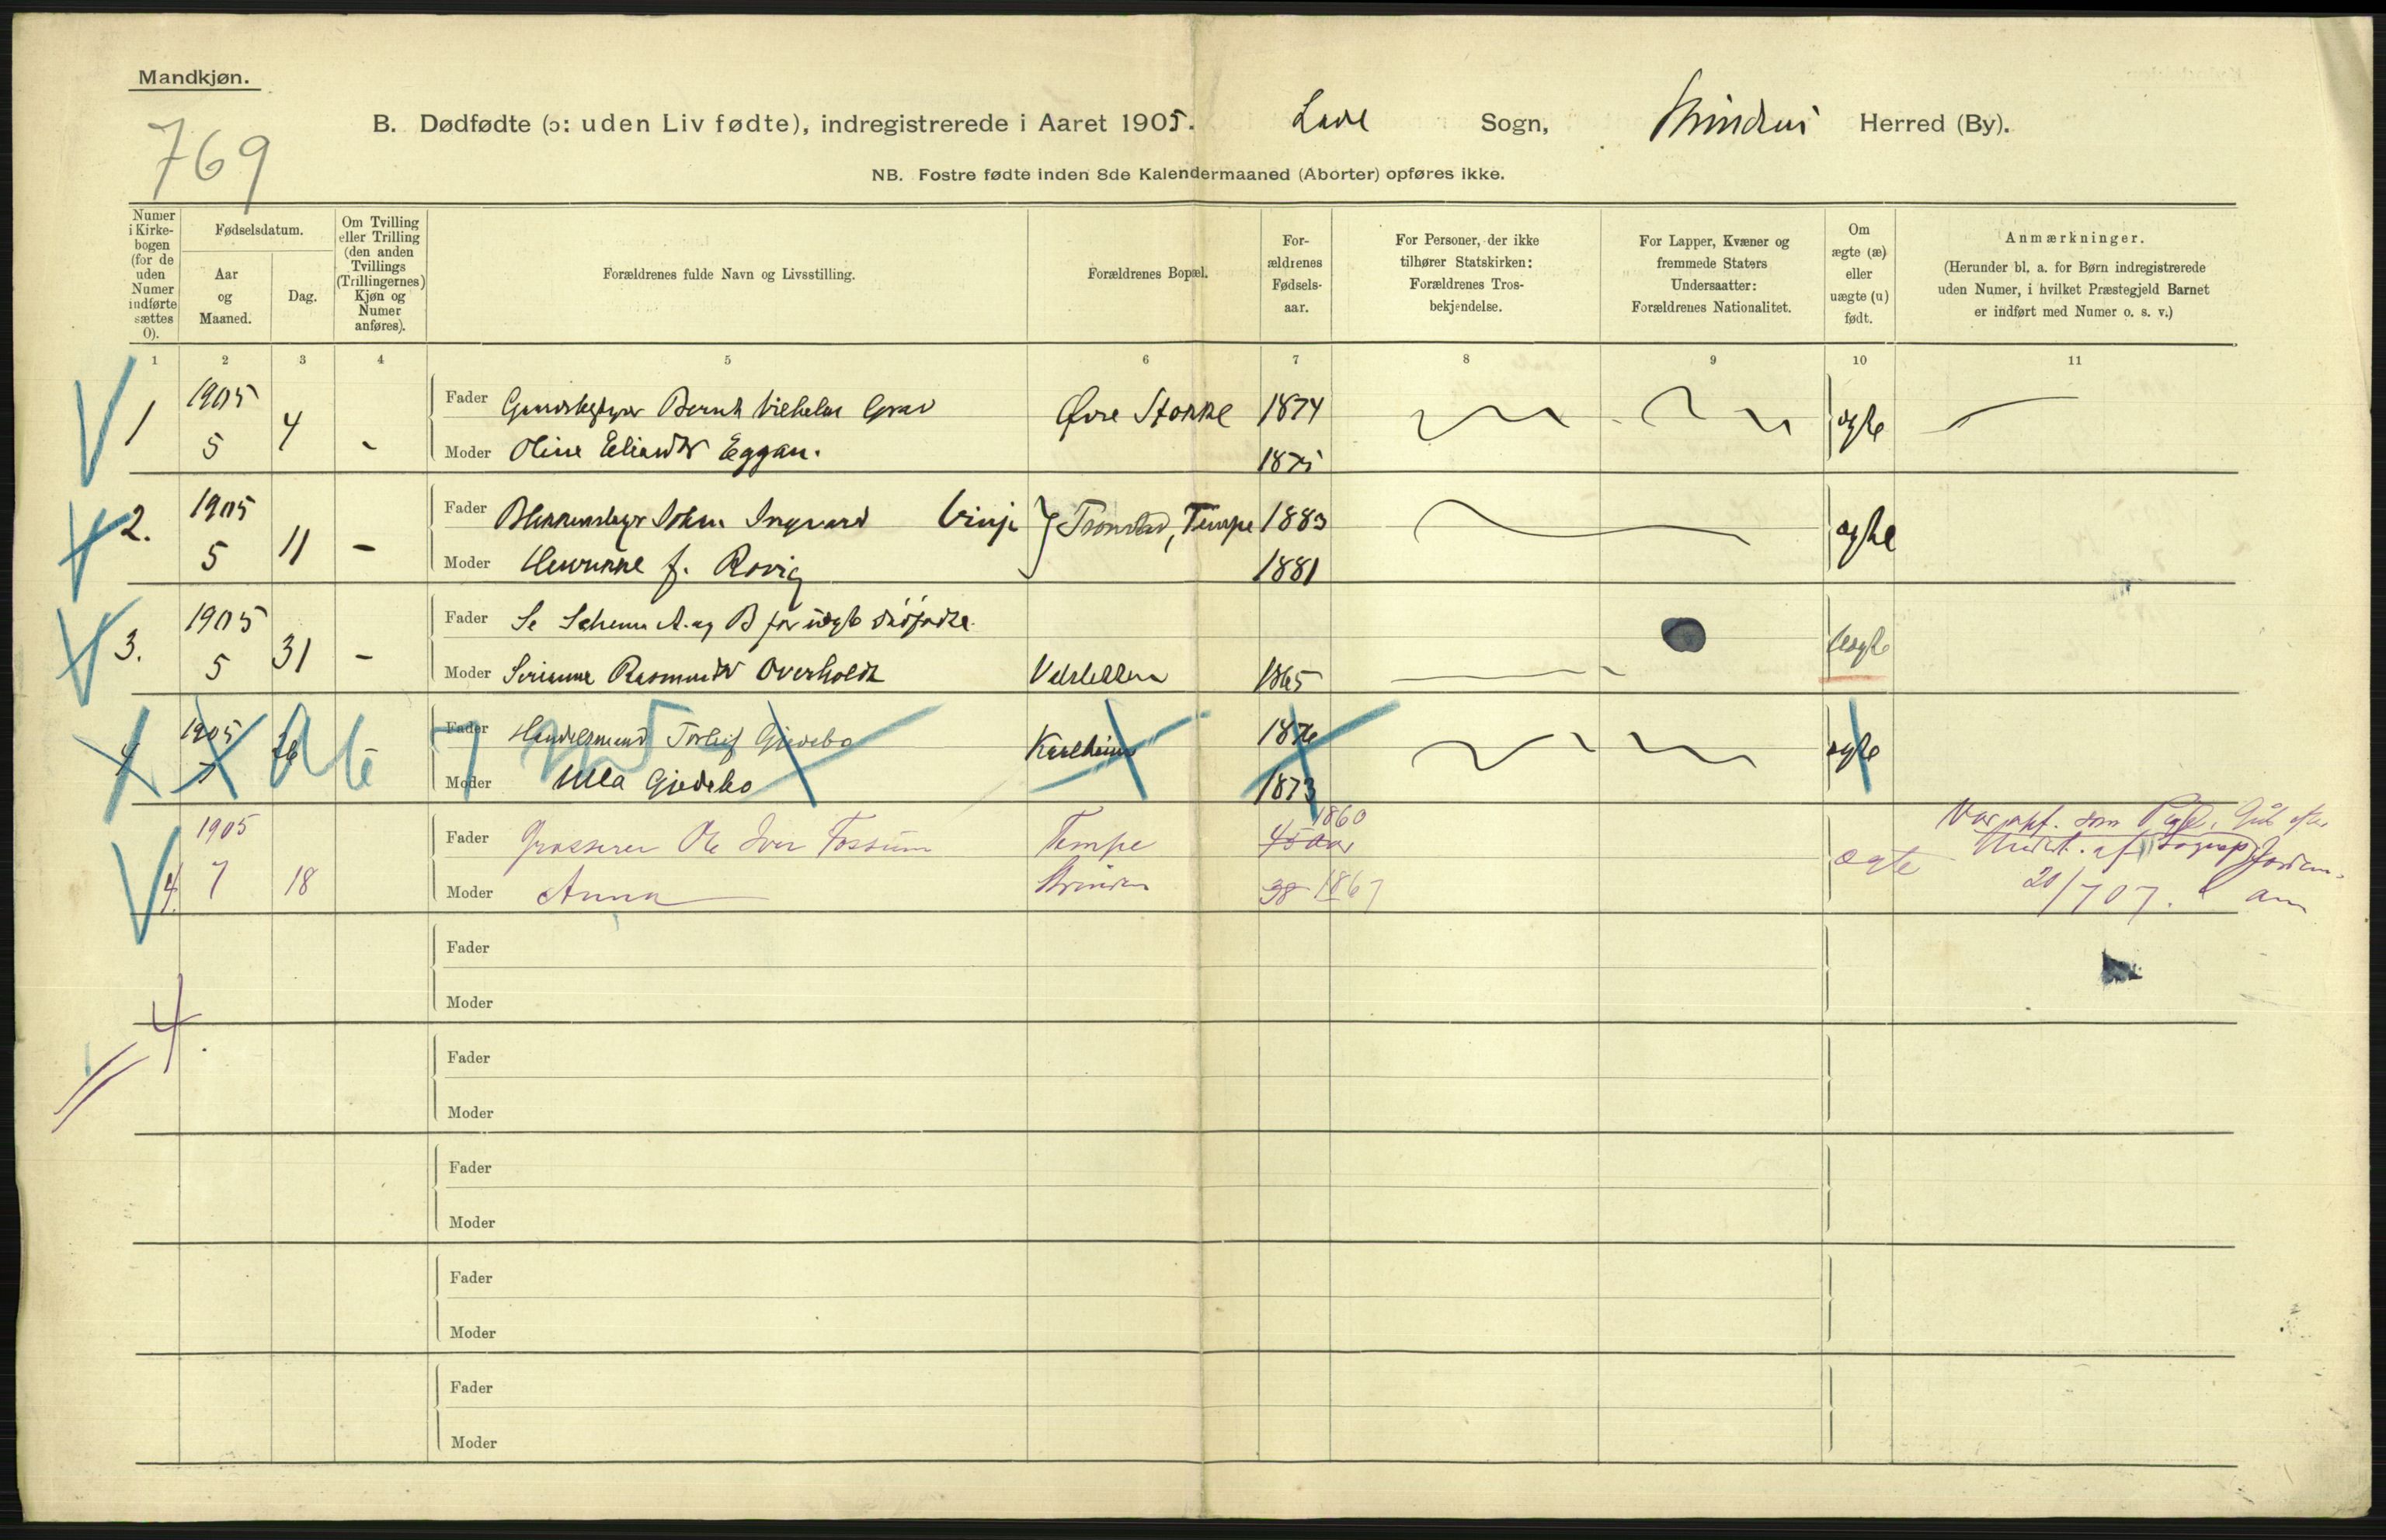 Mandkjøn.
769
B. Dødfødte (ɔ: uden Liv fødte), indregistrerede i Aaret 1905. Lade Sogn, Strinden Herred (By).
NB. Fostre fødte inden 8de Kalendermaaned (Aborter) opføres ikke.
Numer i Kirkebogen (for de uden Numer indførte sættes 0).
Fødselsdatum.
Aar og Maaned.
Dag.
Om Tvilling eller Trilling (den anden Tvillings (Trillingernes) Kjøn og Numer anføres).
Forældrenes fulde Navn og Livsstilling.
Forældrenes Bopæl.
For-ældrenes Fødsels-aar.
For Personer, der ikke tilhører Statskirken: Forældrenes Tros-bekjendelse.
For Lapper, Kvæner og fremmede Staters Undersaatter: Forældrenes Nationalitet.
Om ægte (æ) eller uægte (u) født.
Anmærkninger.
(Herunder bl. a. for Børn indregistrerede uden Numer, i hvilket Præstegjeld Barnet er indført med Numer o. s. v.)
1 2 3 4 5 6 7 8 9 10 11
1 1905 5 4 - Fader Bernt Vilhelm Grav Øvre Stokke 1874 ægte
Moder Oline Eliasdtr Eggan. 1875
2. 1905 5 11 - Fader Blikkenslager Johan Ingvard Vinje Tronstad, Tempe 1883 ægte
Moder f. Rovig 1881
3. 1905 5 31 - Fader Se Schema A. og B for uægte dødfødte.
Moder Rasmusdtr Overholdt 1865 uægte
4 1905 7 26 Fader Handelsmand Torleif Gjedebo Karlheim 1876 ægte
Moder Ulla Gjedebo 1873
4. 1905 7 18 Fader Grosserer Ole Iver Fossum Tempe 45 Aar 1860 ægte
Moder Anna Strinden 38 1867
Var opf. som Pige.
20/7 07.
Fader
Moder
4.
Fader
Moder
Fader
Moder
Fader
Moder
Fader
Moder